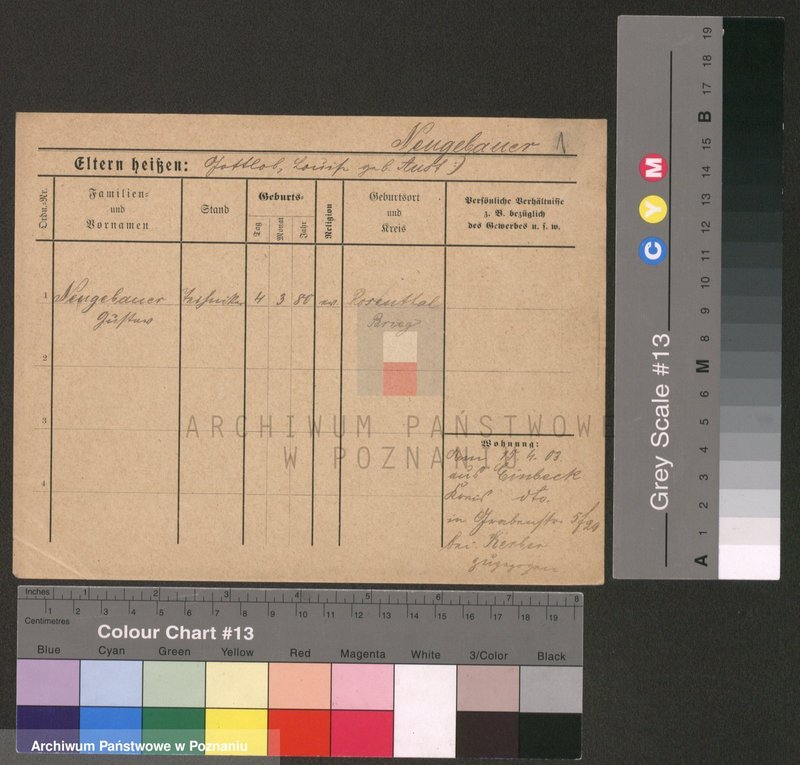 Neugebauer 1
Eltern heißen: Gottlob, Louise geb. Aust :)
Ordn.-Nr.
Familien-
und
Vornamen
Stand
Geburts-
Tag
Monat
Jahr
Religion
Geburtsort
und
Kreis
Persönliche Verhältnisse
z. B. bezüglich
des Gewerbes u. s. w.
1 Neugebauer Techniker 4 3 80 ev. Rosenthal
Gustav Brieg
2
3
4
Wohnung:
Am 15. 4. 03.
aus Einbeck
Kreis dto.
in Grabenstr. 5/
bei Kerber
zugezogen
ARCHIWUM PAŃSTWOWE
W POZNANIU
Grey Scale #13
C Y M
A 1 2 3 4 5 6 M 8 9 10 11 12 13 14 15 B 17 18 19
Inches 1 2 3 4 5 6 7 8
Centimetres 1 2 3 4 5 6 7 8 9 10 11 12 13 14 15 16 17 18 19
Colour Chart #13
Blue Cyan Green Yellow Red Magenta White 3/Color Black
Archiwum Państwowe w Poznaniu